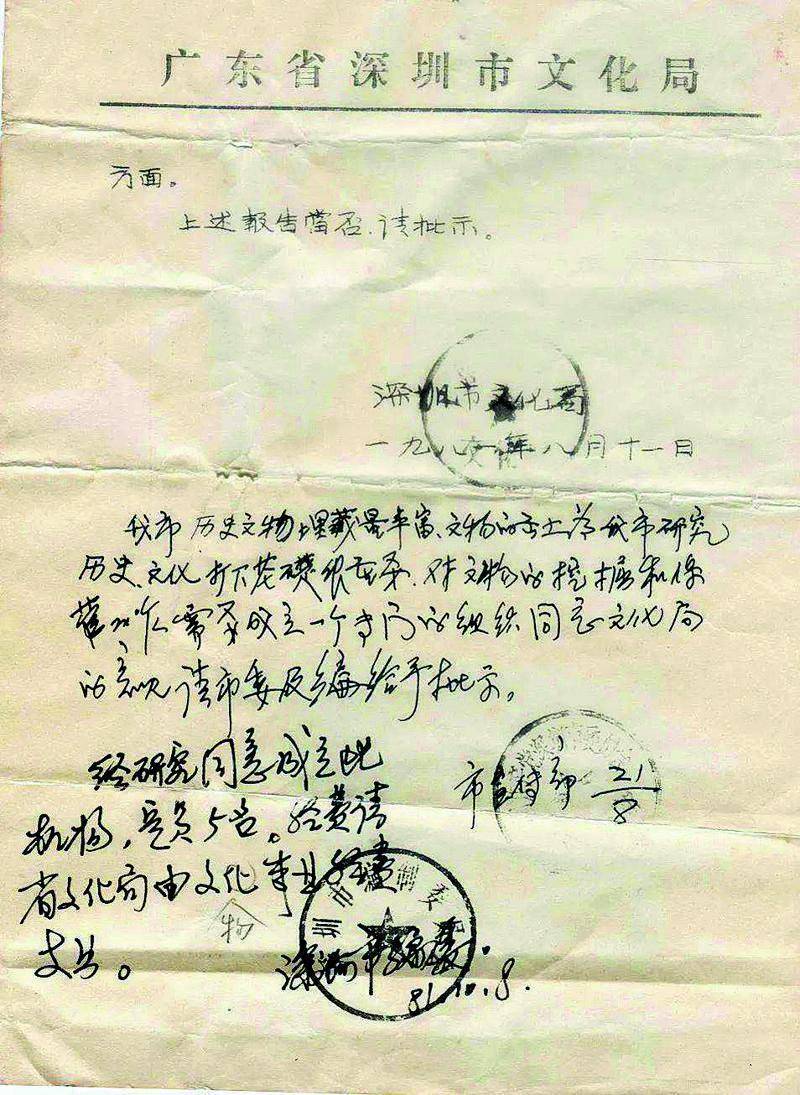 广东省深圳市文化局
方面。
上述报告当否,请批示。
深圳市文化局
一九八一年八月十一日
我市历史文物埋藏最丰富,文物的出土为我市研究
历史、文化打下基础很重要,对文物的挖掘和保
管工作需要成立一个专门的组织同意文化局
的意见,请市委及编委给予批示。
市宣传部 21/8
经研究同意成立此
机构,定员5名。经费请
省文化局由文化事业经费
物
支出。
深圳市编委
81.10.8.